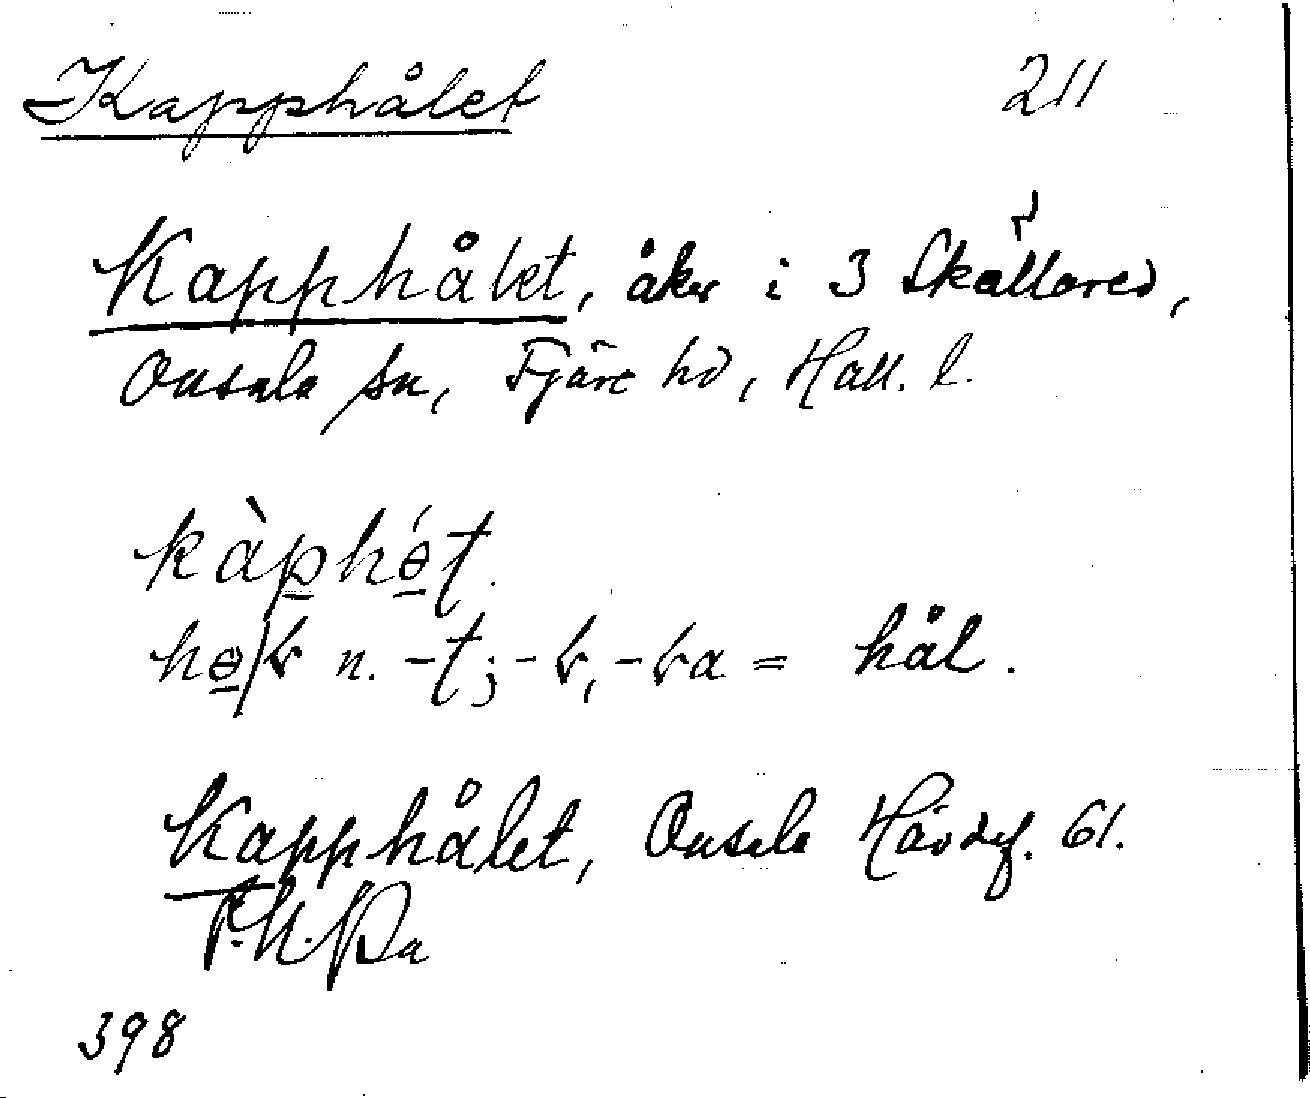 Kapphålet 211
Kapphålet, åker i 3 Skällared,
Onsala sn, Fjäre hd, Hall. l.
kàphɵ́t.
hɵ/ɽ n. -t; -ɽ, -ɽa = hål.
Kapphålet, Onsala Hävdef. 61.
398